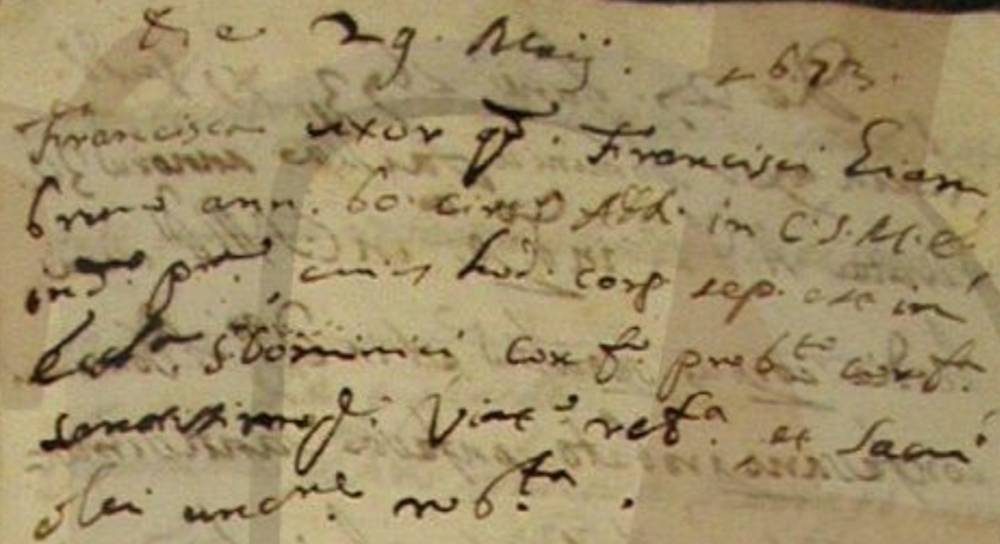 Die 29. Maij. 1673.
Francisca uxor qm. Francisci Ciam
ann. 60. circr Adh. in C.S.M.E.
cuius hod. corp. sep. est in
Eccla. S Dominici Conf. prob.to conf.ta
Sanctissimoq. Viat.o ref.ta et Sacri
olei unc.ne rob.ta.